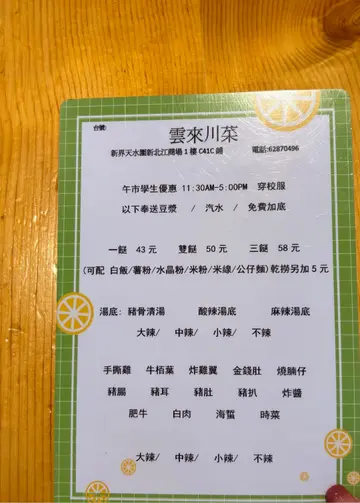 台號:
雲來川菜
新界天水圍新北江商場1樓C41C鋪 電話:62870496
午市學生優惠 11:30AM-5:00PM 穿校服
以下奉送豆漿 / 汽水 / 免費加底
一餸 43元 雙餸 50元 三餸 58元
(可配 白飯/薯粉/水晶粉/米粉/米線/公仔麵)乾撈另加5元
湯底: 豬骨清湯 酸辣湯底 麻辣湯底
大辣/ 中辣/ 小辣/ 不辣
手撕雞 牛栢葉 炸雞翼 金錢肚 燒腩仔
豬腸 豬耳 豬肚 豬扒 炸醬
肥牛 白肉 海蜇 時菜
大辣/ 中辣/ 小辣/ 不辣